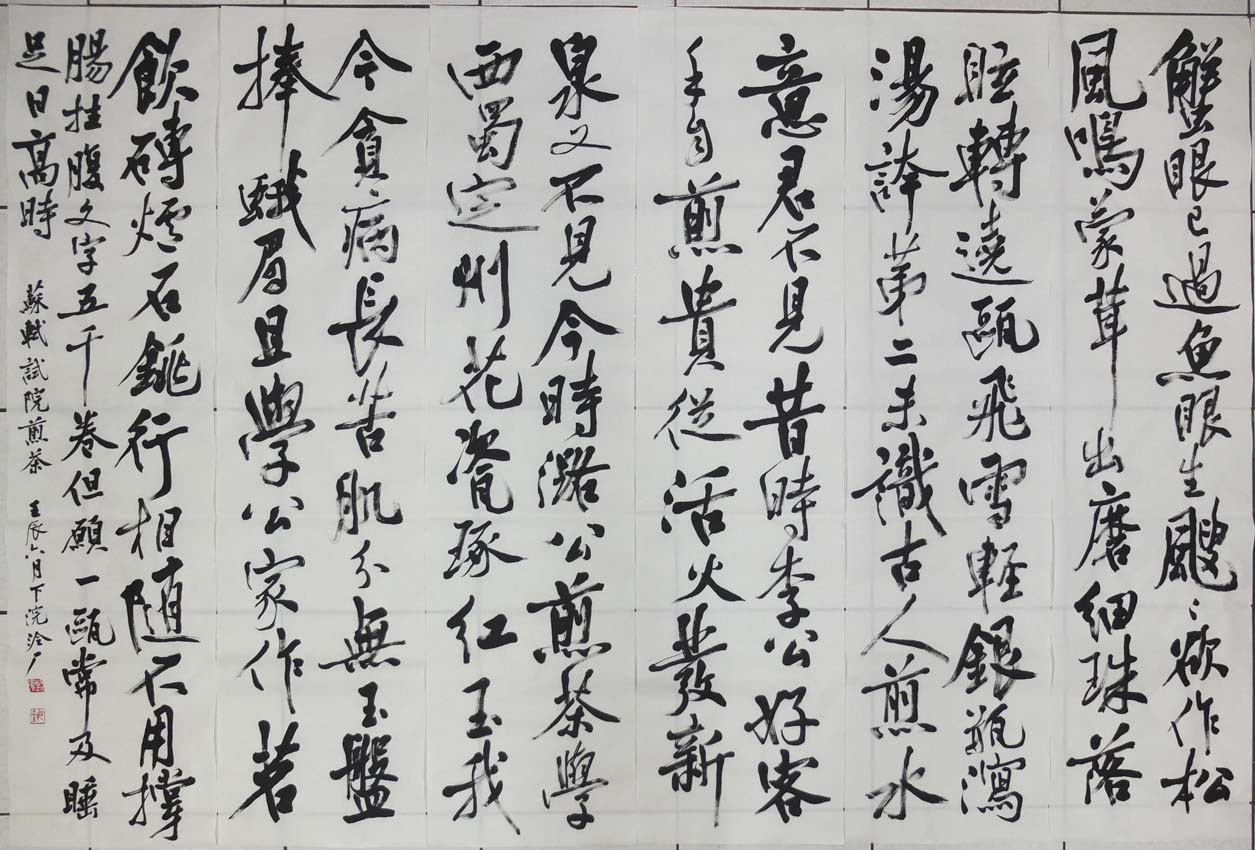 蟹眼已過魚眼生颼〻欲作松
風鳴蒙茸出磨細珠落
眩轉遶甌飛雪輕銀瓶瀉
湯誇第二未識古人煎水
意君不見昔時李公好客
手自煎貴從活火發新
泉又不見今時潞公煎茶學
西蜀定州花瓷琢紅玉我
今貧病長苦肌分無玉盤
捧蛾眉且學公家作茗
飲磚爐石銚行相隨不用撐
腸挂腹文字五千卷但願一甌常及睡
足日高時 蘇軾試院煎茶 壬辰六月下浣